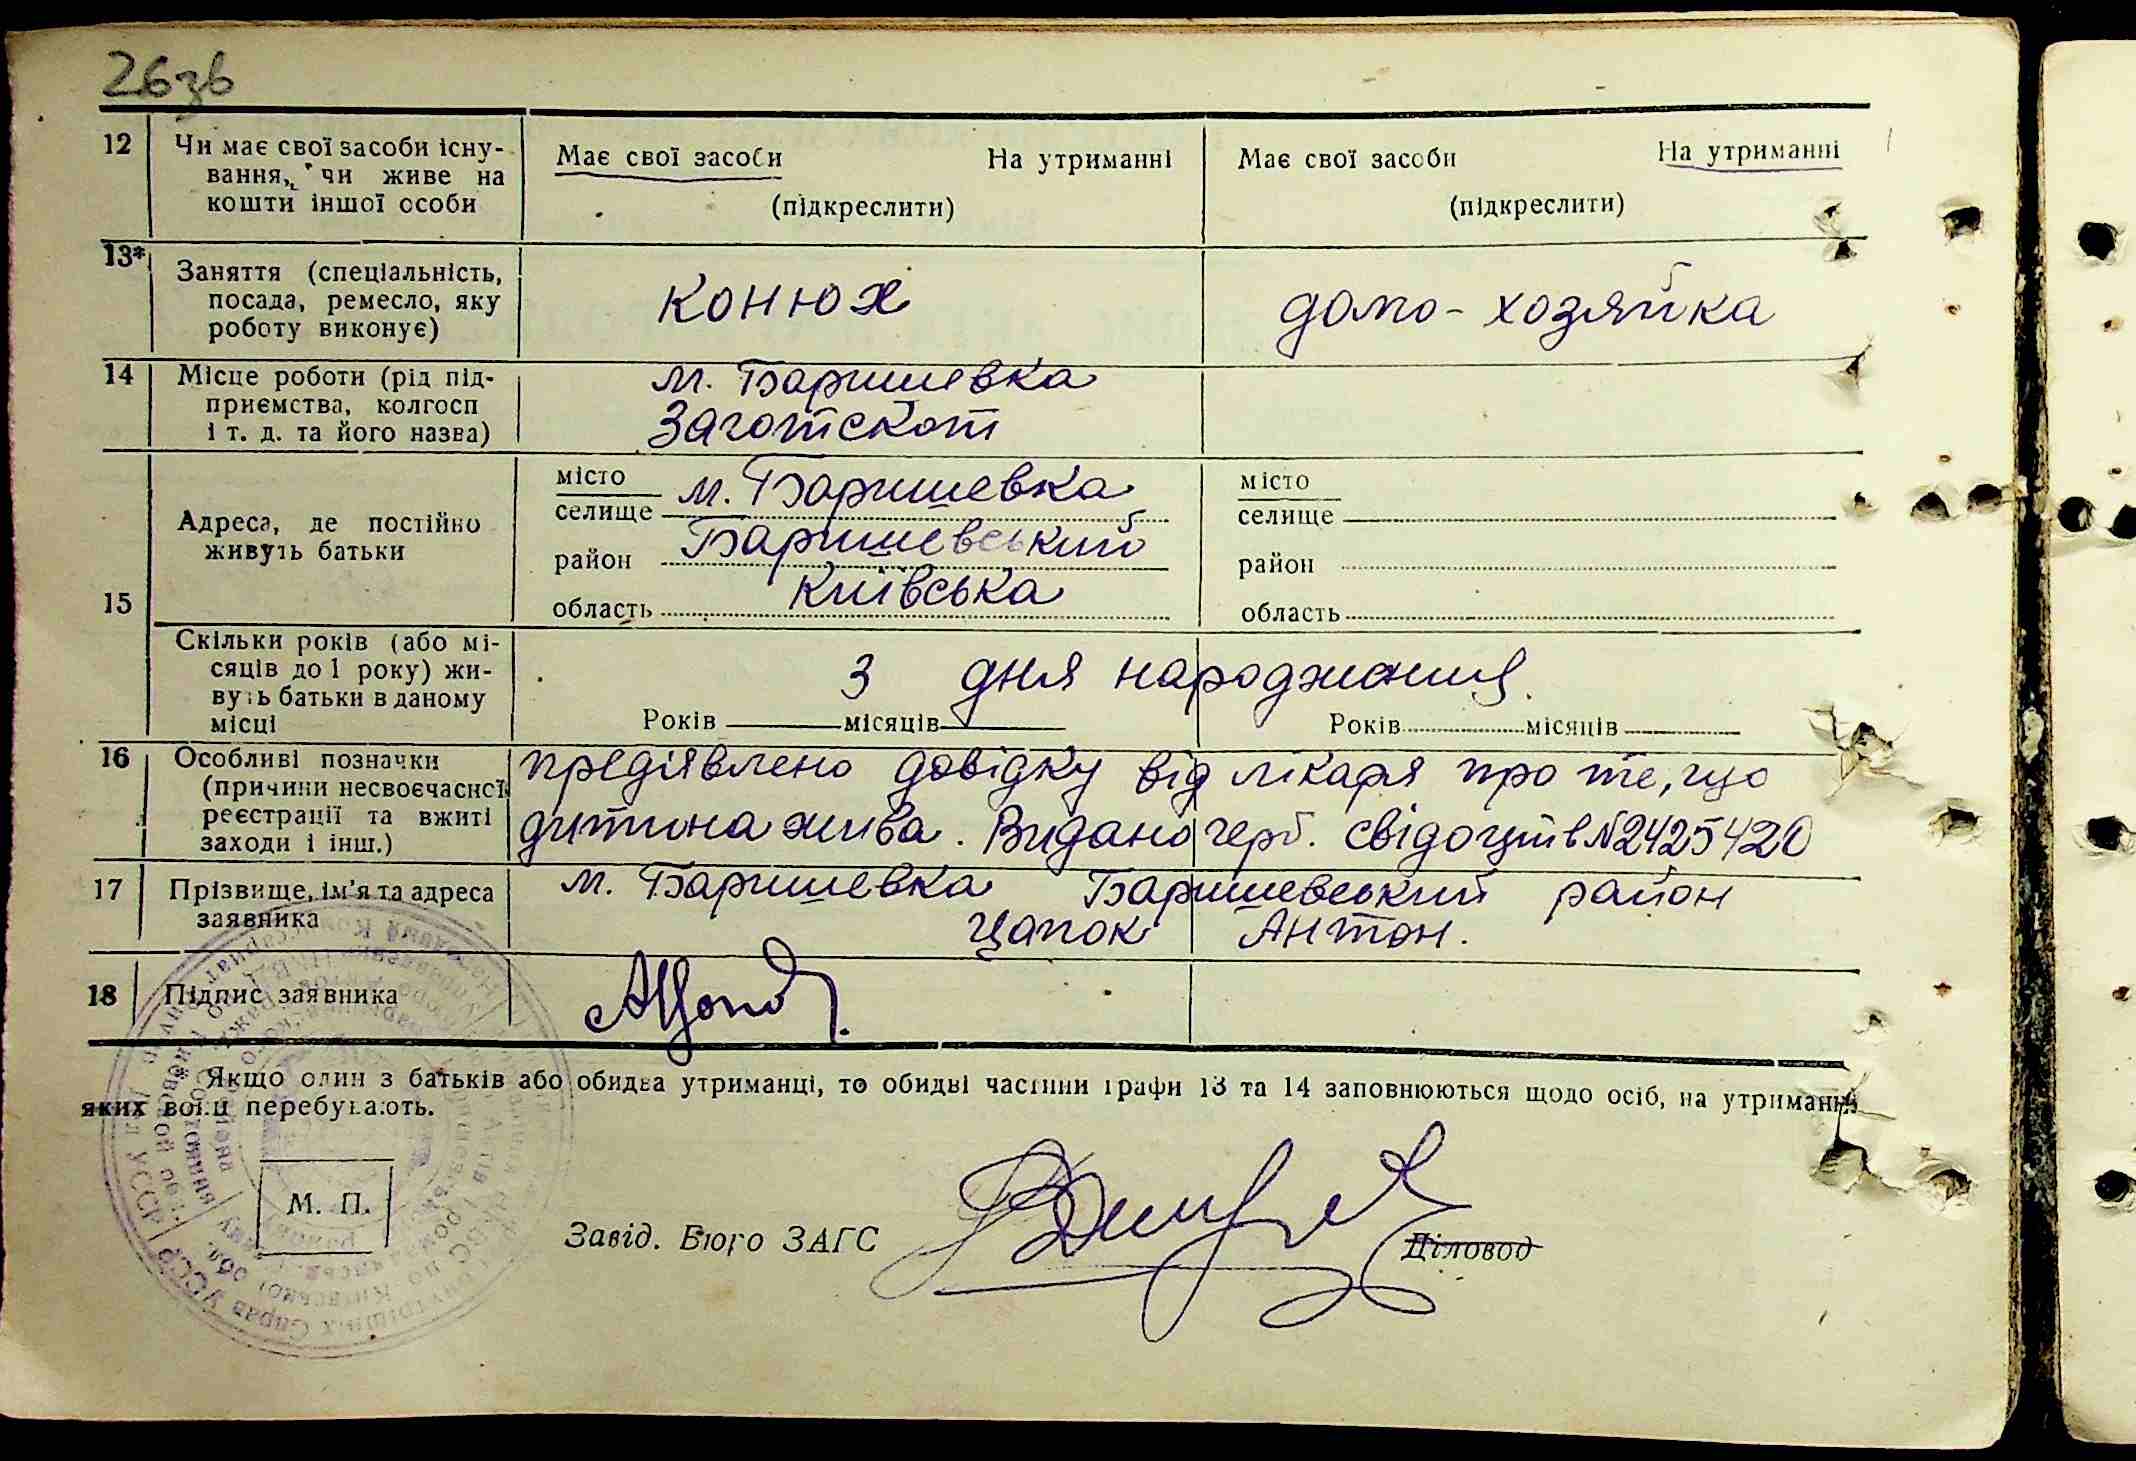 26зв
12 Чи має свої засоби існу-
вання, чи живе на
кошти іншої особи
Має свої засоби На утриманні
(підкреслити)
Має свої засоби На утриманні
(підкреслити)
13* Заняття (спеціальність,
посада, ремесло, яку
роботу виконує)
конюх
домо-хозяйка
14 Місце роботи (рід під-
приємства, колгосп
і т. д. та його назва)
м. Баришевка
Заготскот
15
Адреса, де постійно
живуть батьки
місто
селище м. Баришевка
район Баришевський
область Київська
місто
селище
район
область
Скільки років (або мі-
сяців до 1 року) жи-
вуть батьки в даному
місці
З дня народження
Років місяців
Років місяців
16 Особливі позначки
(причини несвоєчасної
реєстрації та вжиті
заходи і інш.)
предіявлено довідку від лікаря про те, що
дитина жива. Видано герб. свідоцтв №2425420
17 Прізвище, ім'я та адреса
заявника
м. Баришевка Баришевський район
Цапок Антон.
18 Підпис заявника
Якщо один з батьків або обидва утриманці, то обидві частини графи 13 та 14 заповнюються щодо осіб, на утриманні
яких вони перебувають.
М. П.
Завід. Бюро ЗАГС
Діловод